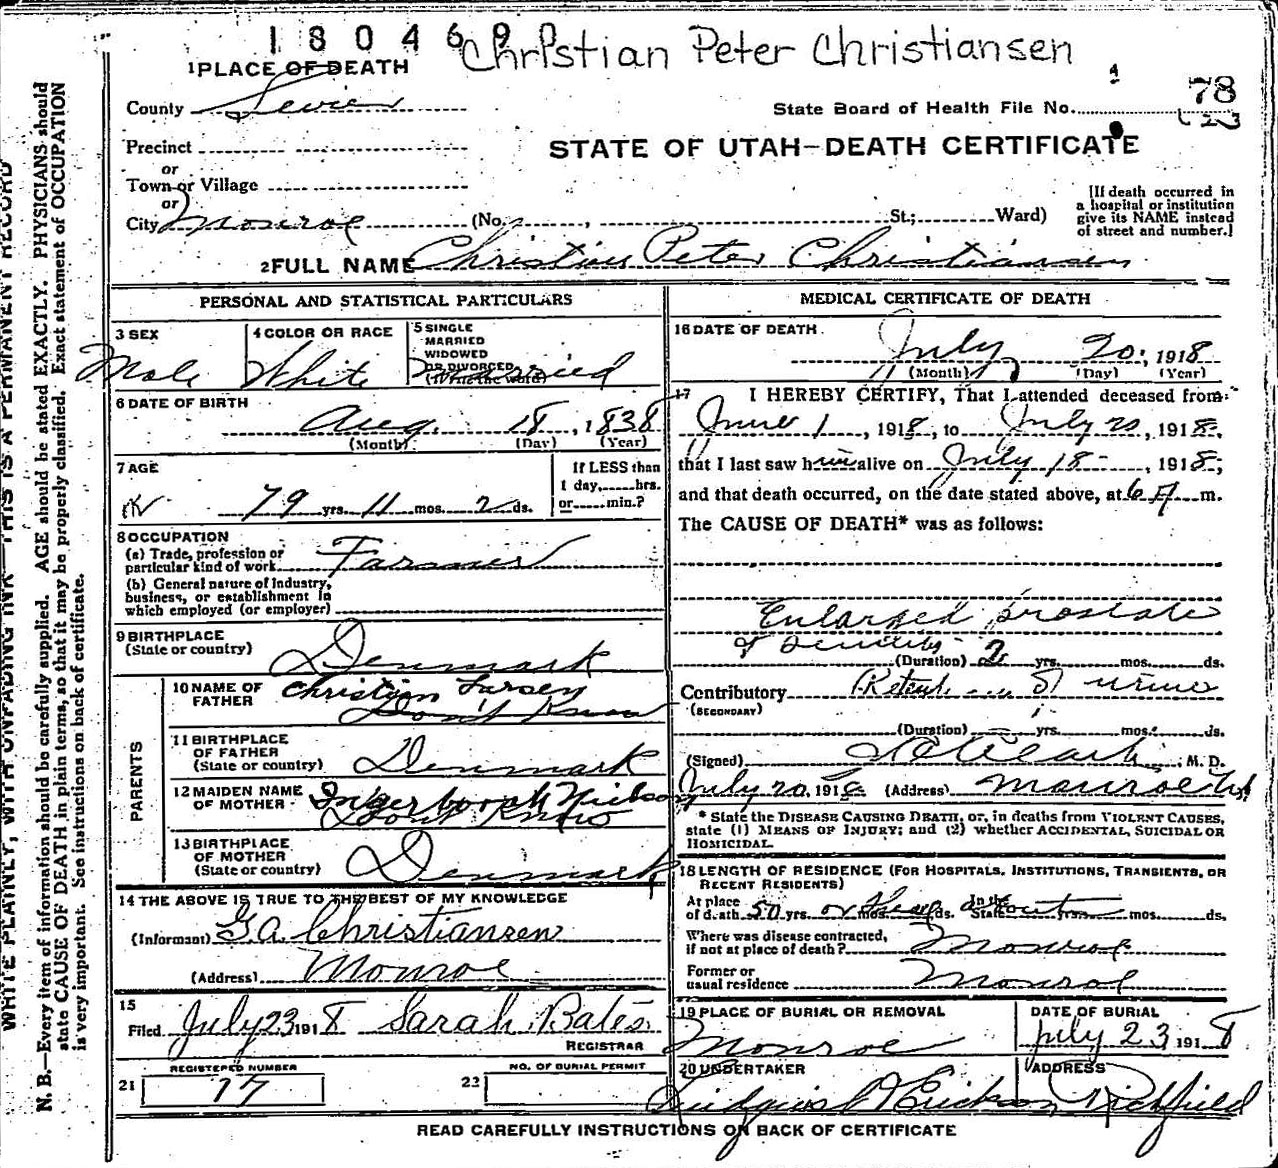 180469 Christian Peter Christiansen
1 PLACE OF DEATH
County Sevier
State Board of Health File No. 78
Precinct
STATE OF UTAH—DEATH CERTIFICATE
or
Town or Village
or
City Monroe (No. , St.; Ward)
[If death occurred in
a hospital or institution
give its NAME instead
of street and number.]
2 FULL NAME Christian Peter Christiansen
PERSONAL AND STATISTICAL PARTICULARS
3 SEX
Male
4 COLOR OR RACE
White
5 SINGLE
MARRIED
WIDOWED
OR DIVORCED
(Write the word)
Married
6 DATE OF BIRTH
Aug. 18, 1838
(Month) (Day) (Year)
7 AGE
79 yrs. 11 mos. 2 ds.
If LESS than
1 day, hrs.
or min.?
8 OCCUPATION
(a) Trade, profession or
particular kind of work Farmer
(b) General nature of industry,
business, or establishment in
which employed (or employer)
9 BIRTHPLACE
(State or country)
Denmark
PARENTS
10 NAME OF
FATHER
Christian Larsen
Don't Know
11 BIRTHPLACE
OF FATHER
(State or country) Denmark
12 MAIDEN NAME
OF MOTHER
Don't Know
13 BIRTHPLACE
OF MOTHER
(State or country) Denmark
14 THE ABOVE IS TRUE TO THE BEST OF MY KNOWLEDGE
(Informant) G.A. Christiansen
(Address) Monroe
15
Filed July 23 1918 Sarah Bates
REGISTRAR
21 REGISTERED NUMBER
17
22 NO. OF BURIAL PERMIT
MEDICAL CERTIFICATE OF DEATH
16 DATE OF DEATH
July 20, 1918
(Month) (Day) (Year)
17 I HEREBY CERTIFY, That I attended deceased from
June 1, 1918, to July 20, 1918,
that I last saw him alive on July 18, 1918,
and that death occurred, on the date stated above, at 6 A m.
The CAUSE OF DEATH* was as follows:
Enlarged prostate
& Senility
(Duration) 2 yrs. mos. ds.
Contributory urine
(SECONDARY)
(Duration) yrs. mos. ds.
(Signed) M. D.
July 20, 1918 (Address) Monroe Ut
* State the DISEASE CAUSING DEATH, or, in deaths from VIOLENT CAUSES,
state (1) MEANS OF INJURY; and (2) whether ACCIDENTAL, SUICIDAL OR
HOMICIDAL.
18 LENGTH OF RESIDENCE (FOR HOSPITALS, INSTITUTIONS, TRANSIENTS, OR
RECENT RESIDENTS)
At place
of death 50 yrs. mos. ds. In the State yrs. mos. ds.
Where was disease contracted,
if not at place of death? Monroe
Former or
usual residence Monroe
19 PLACE OF BURIAL OR REMOVAL
Monroe
DATE OF BURIAL
July 23 1918
20 UNDERTAKER
Erickson
ADDRESS
Richfield
READ CAREFULLY INSTRUCTIONS ON BACK OF CERTIFICATE
WRITE PLAINLY, WITH UNFADING INK—THIS IS A PERMANENT RECORD
N. B.—Every item of information should be carefully supplied. AGE should be stated EXACTLY. PHYSICIANS should
state CAUSE OF DEATH in plain terms, so that it may be properly classified. Exact statement of OCCUPATION
is very important. See instructions on back of certificate.